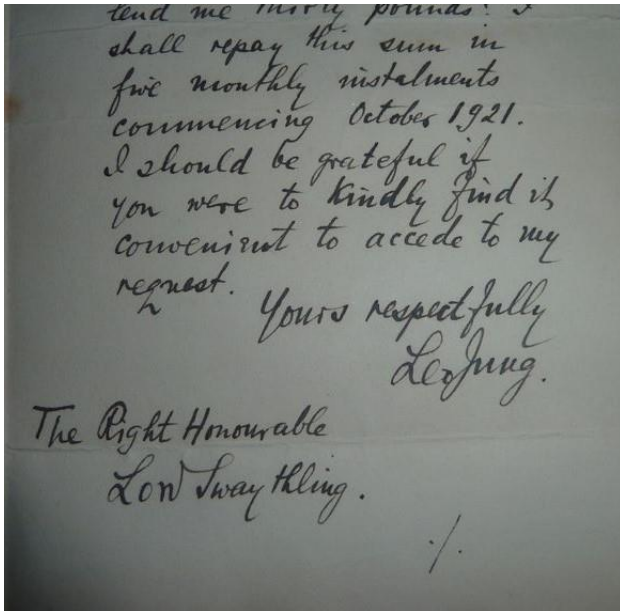 lend me thirty pounds. I
shall repay this sum in
five monthly instalments
commencing October 1921.
I should be grateful if
you were to kindly find it
convenient to accede to my
request.
Yours respectfully
Leo Jung.
The Right Honourable
Lord Swaythling.
./.